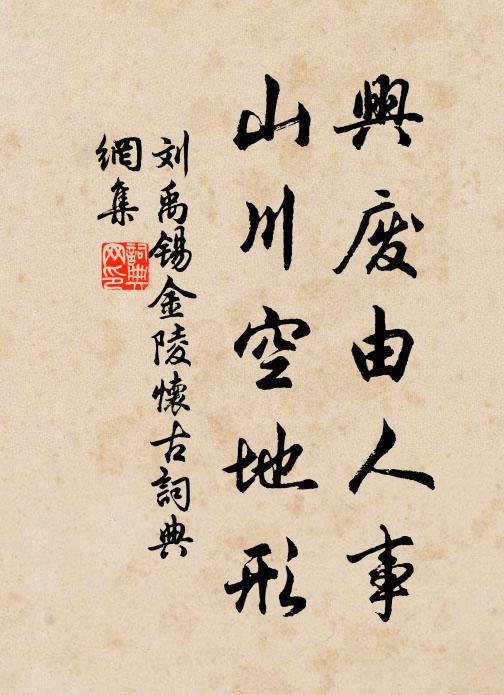 興废由人事
山川空地形
刘禹锡金陵懷古詞典
網集
詞典
网印